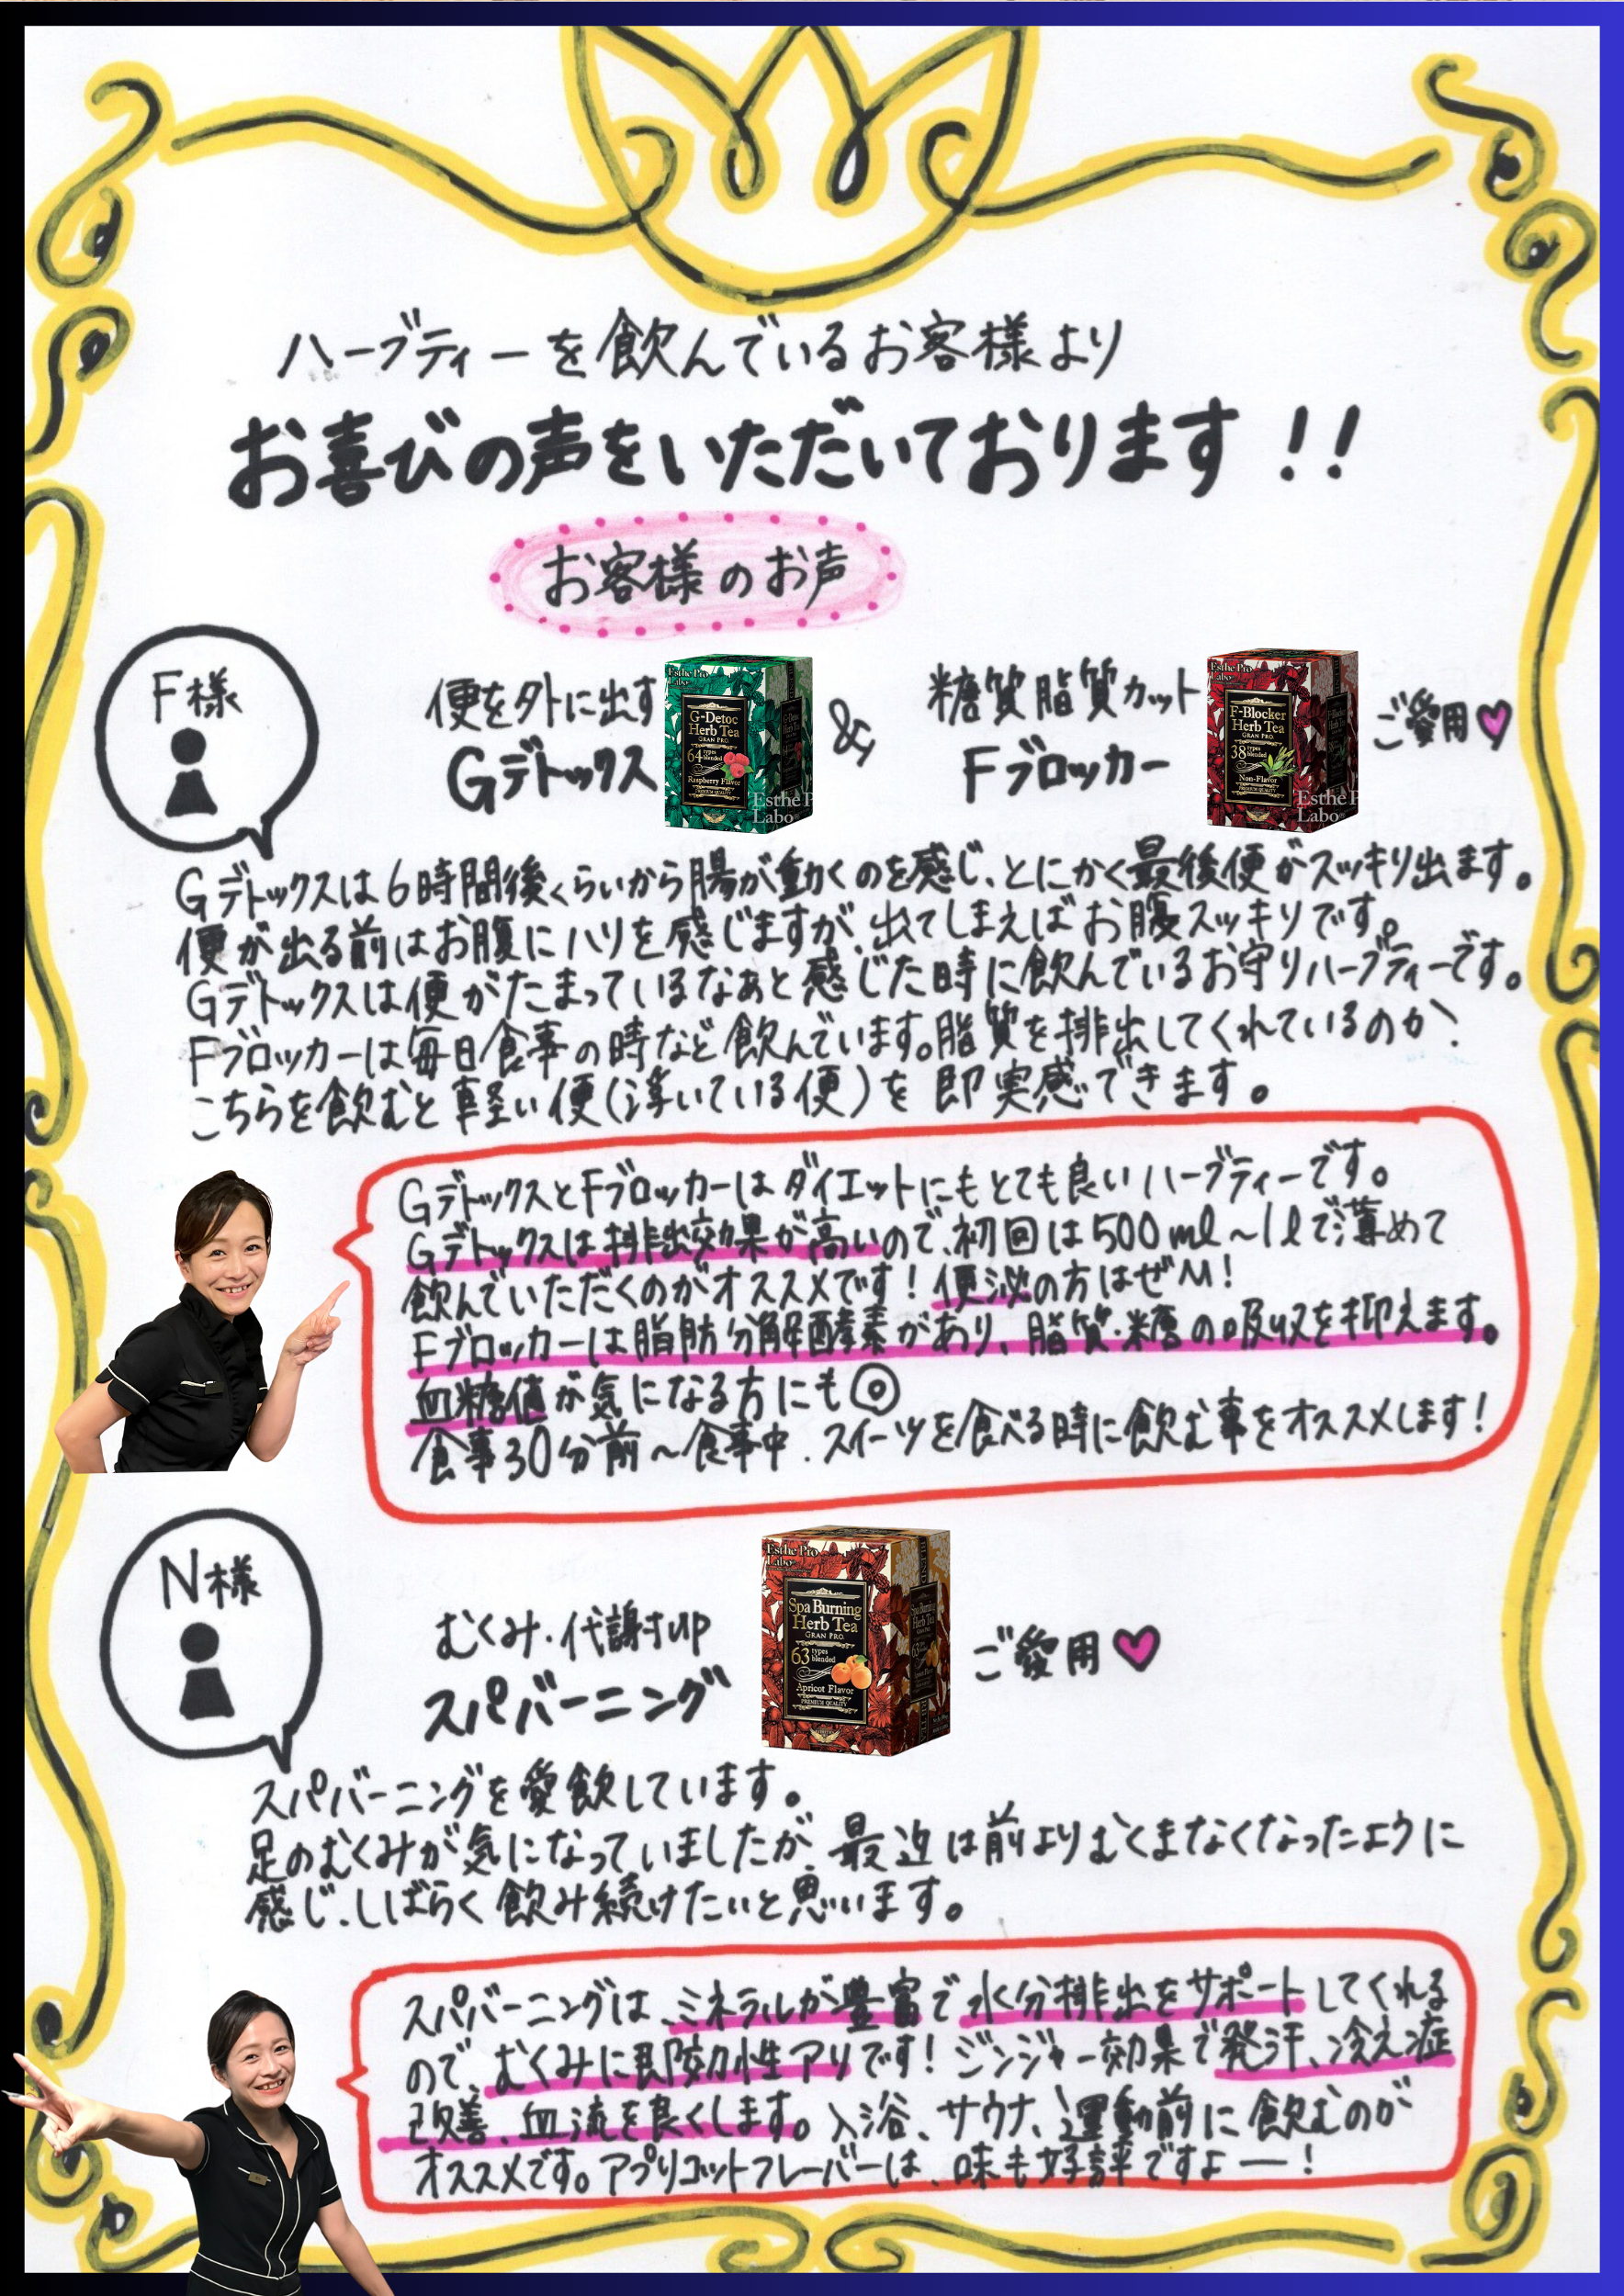 ハーブティーを飲んでいるお客様より
お喜びの声をいただいております!!
お客様のお声
F様
便を外に出す
Gデトックス
Esthe Pro
Labo
G-Detoc
Herb Tea
GRAN PRO.
64 types blended
Raspberry Flavor
PREMIUM QUALITY
Esthe P
Labo
&
糖質脂質カット
Fブロッカー
Esthe Pro
Labo
F-Blocker
Herb Tea
GRAN PRO.
38 types blended
Non-Flavor
PREMIUM QUALITY
Esthe P
Labo
ご愛用
Gデトックスは6時間後くらいから腸が動くのを感じ、とにかく最後便がスッキリ出ます。
便が出る前はお腹にハリを感じますが、出てしまえばお腹スッキリです。
Gデトックスは便がたまっているなぁと感じた時に飲んでいるお守りハーブティーです。
Fブロッカーは毎日食事の時など飲んでいます。脂質を排出してくれているのか、
こちらを飲むと軽い便(浮いている便)を即実感できます。
GデトックスとFブロッカーはダイエットにもとても良いハーブティーです。
Gデトックスは排出効果が高いので、初回は500ml~1lで薄めて
飲んでいただくのがオススメです!便泌の方はぜひ!
Fブロッカーは脂肪分解酵素があり、脂質・糖の吸収を抑えます。
血糖値が気になる方にも◎
食事30分前~食事中、スイーツを食べる時に飲む事をオススメします!
N様
むくみ・代謝up
スパバーニング
Esthe Pro
Labo
Spa Burning
Herb Tea
GRAN PRO.
63 types blended
Apricot Flavor
PREMIUM QUALITY
ご愛用
スパバーニングを愛飲しています。
足のむくみが気になっていましたが、最近は前よりむくまなくなったように
感じ、しばらく飲み続けたいと思います。
スパバーニングは、ミネラルが豊富で水分排出をサポートしてくれる
ので、むくみに即効性アリです!ジンジャー効果で発汗、冷え症
改善、血流を良くします。入浴、サウナ、運動前に飲むのが
オススメです。アプリコットフレーバーは、味も好評ですよー!